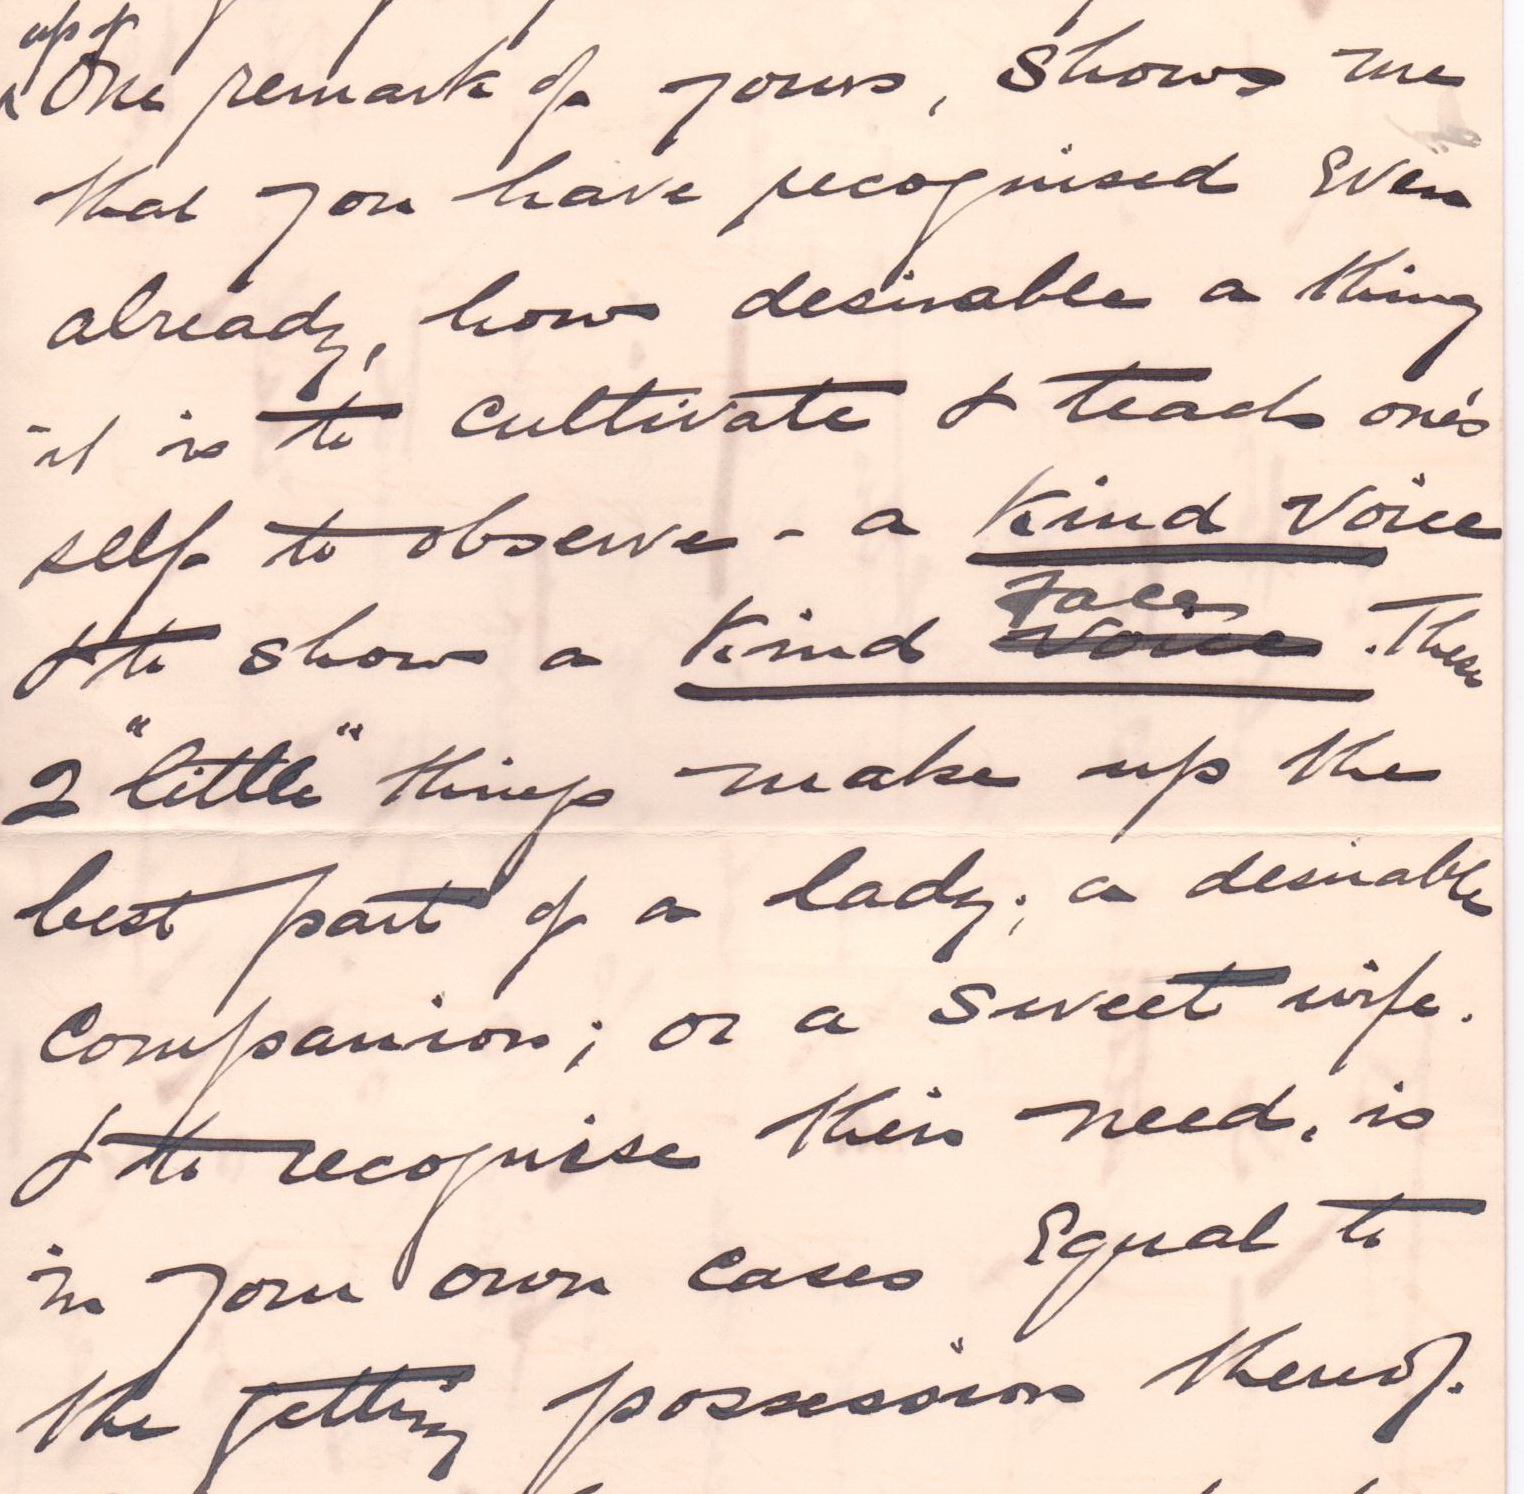 One remark of yours, shows me
that you have recognised Even
already, how desirable a thing
it is to cultivate & teach one's
self to observe - a Kind Voice
& to show a Kind Voice Face. These
2 "little" things make up the
best part of a lady; a desirable
Companion; or a sweet wife.
& to recognise their need, is
in your own cases Equal to
the getting possession thereof.